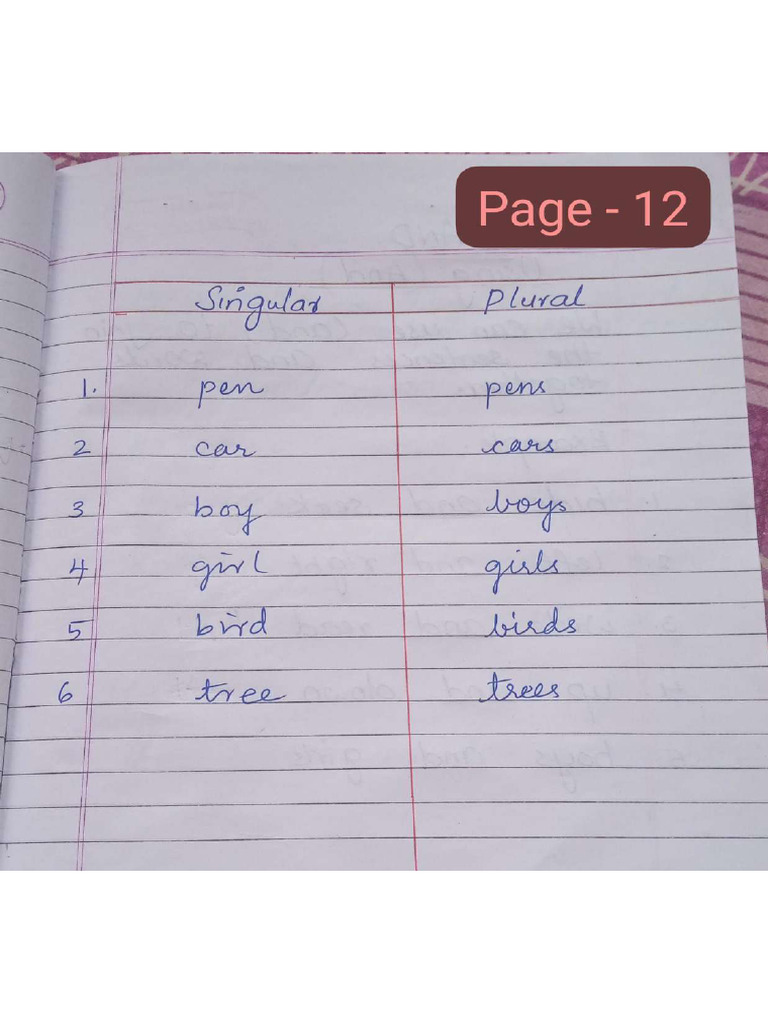 Page - 12
Singular Plural
1. pen pens
2 car cars
3 boy boys
4 girl girls
5 bird birds
6 tree trees